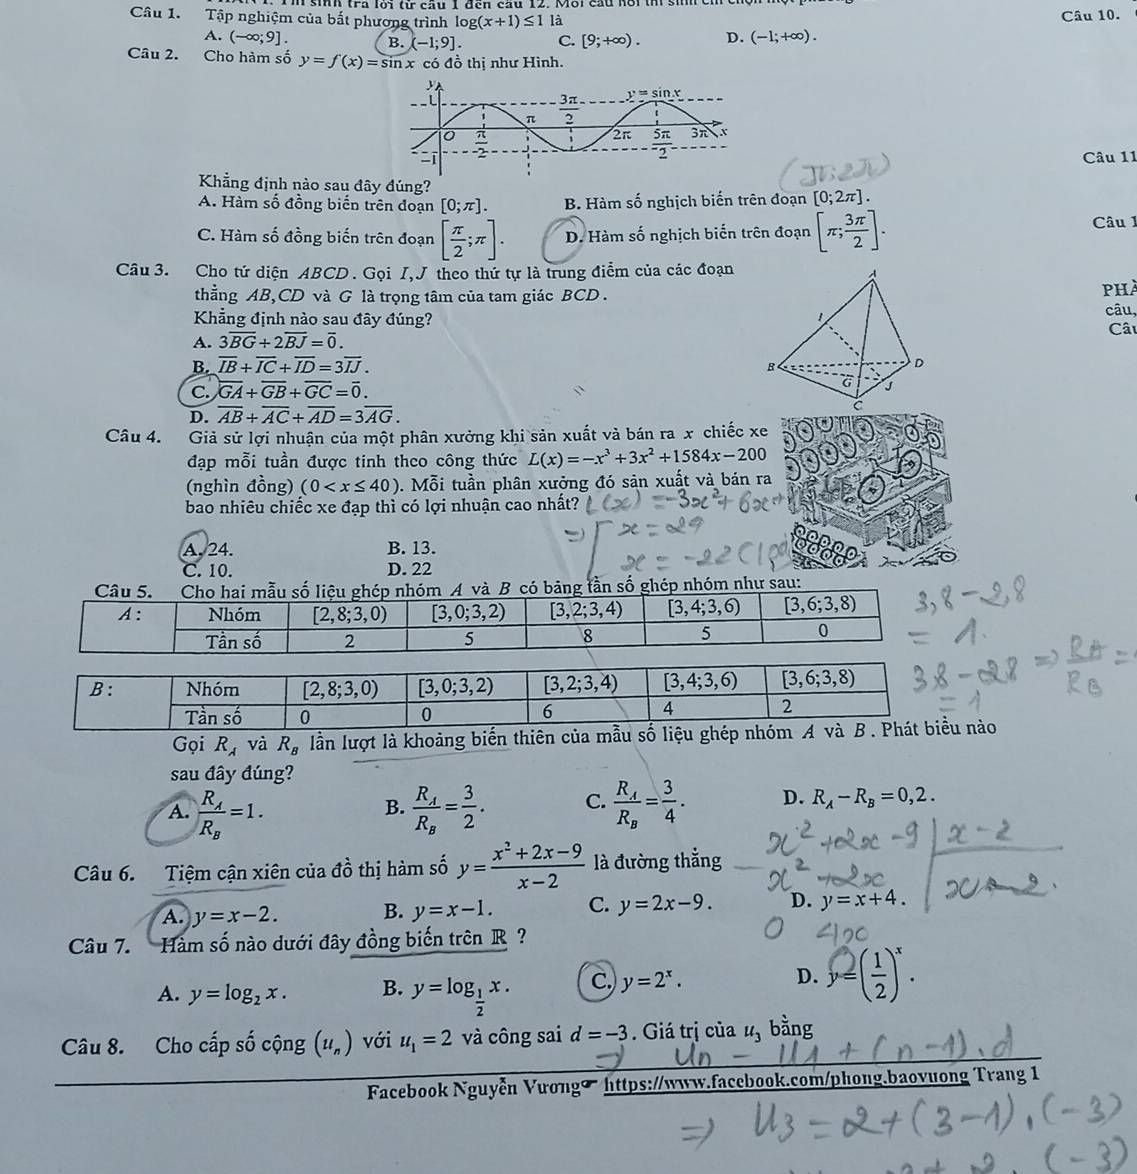 Câu 1. Tập nghiệm của bất phương trình log(x+1) ≤ 1 là
Câu 10.
A. (−∞;9]. B. (−1;9]. C. [9;+∞). D. (−1;+∞).
Câu 2. Cho hàm số y = f(x) = sin x có đồ thị như Hình.
y
1
3π/2
y = sin x
π
O
π/2
2π
5π/2
3π
x
−1
Câu 11
(π;2π)
Khẳng định nào sau đây đúng?
A. Hàm số đồng biến trên đoạn [0;π]. B. Hàm số nghịch biến trên đoạn [0;2π].
Câu 1
C. Hàm số đồng biến trên đoạn [π/2;π]. D. Hàm số nghịch biến trên đoạn [π;3π/2].
Câu 3. Cho tứ diện ABCD. Gọi I,J theo thứ tự là trung điểm của các đoạn
thẳng AB,CD và G là trọng tâm của tam giác BCD.
PHÀ
câu,
Khẳng định nào sau đây đúng?
A. 3BG + 2BJ = 0.
B. IB + IC + ID = 3IJ.
C. GA + GB + GC = 0.
D. AB + AC + AD = 3AG.
A
I
B
D
G
J
C
Câu 4. Giả sử lợi nhuận của một phân xưởng khi sản xuất và bán ra x chiếc xe
đạp mỗi tuần được tính theo công thức L(x) = −x³ + 3x² + 1584x − 200
(nghìn đồng) (0 < x ≤ 40). Mỗi tuần phân xưởng đó sản xuất và bán ra
bao nhiêu chiếc xe đạp thì có lợi nhuận cao nhất? L(x) = −3x² + 6x +
⇒ [ x = 29
x = −22
A. 24. B. 13.
C. 10. D. 22
Câu 5. Cho hai mẫu số liệu ghép nhóm A và B có bảng tần số ghép nhóm như sau:
A: Nhóm [2,8;3,0) [3,0;3,2) [3,2;3,4) [3,4;3,6) [3,6;3,8)
Tần số 2 5 8 5 0
3,8 − 2,8
= 1.
B: Nhóm [2,8;3,0) [3,0;3,2) [3,2;3,4) [3,4;3,6) [3,6;3,8)
Tần số 0 0 6 4 2
3,8 − 2,8 ⇒ RA/RB =
= 1
Gọi R_A và R_B lần lượt là khoảng biến thiên của mẫu số liệu ghép nhóm A và B. Phát biểu nào
sau đây đúng?
A. R_A/R_B = 1. B. R_A/R_B = 3/2. C. R_A/R_B = 3/4. D. R_A − R_B = 0,2.
x² + 2x − 9 | x − 2
Câu 6. Tiệm cận xiên của đồ thị hàm số y = (x² + 2x − 9)/(x − 2) là đường thẳng
x² + 2x
A. y = x − 2. B. y = x − 1. C. y = 2x − 9. D. y = x + 4.
0
Câu 7. Hàm số nào dưới đây đồng biến trên ℝ ?
A. y = log₂ x. B. y = log_{1/2} x. C. y = 2ˣ. D. y = (1/2)ˣ.
Câu 8. Cho cấp số cộng (uₙ) với u₁ = 2 và công sai d = −3. Giá trị của u₃ bằng
⇒ Un = U1 + (n − 1).d
Facebook Nguyễn Vương https://www.facebook.com/phong.baovuong Trang 1
⇒ U3 = 2 + (3 − 1).(−3)
(−3)